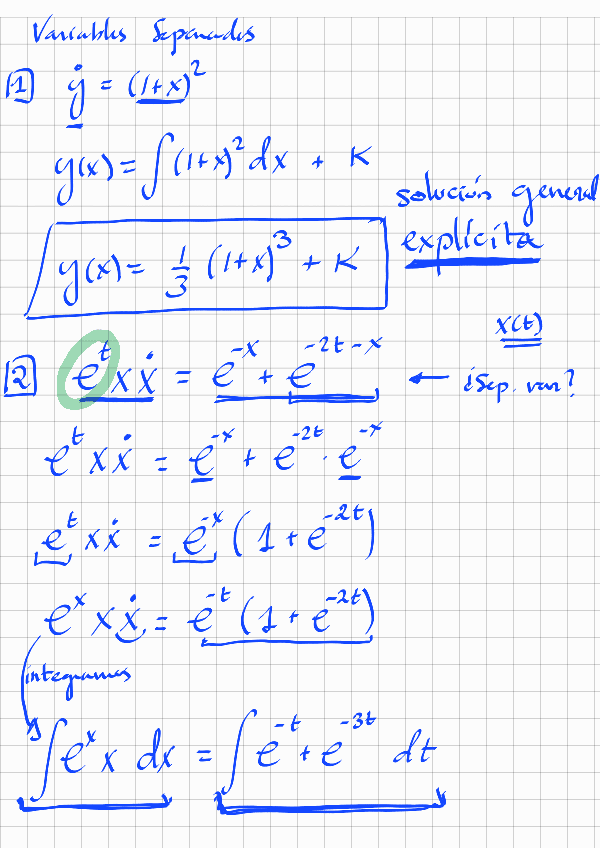 Variables Separadas
1 ẏ = (1+x)²
y(x) = ∫(1+x)² dx + K
solución general
explícita
y(x) = 1/3 (1+x)³ + K
x(t)
2 eᵗ x ẋ = e⁻ˣ + e⁻²ᵗ⁻ˣ ← ¿Sep. var?
eᵗ x ẋ = e⁻ˣ + e⁻²ᵗ · e⁻ˣ
eᵗ x ẋ = e⁻ˣ (1 + e⁻²ᵗ)
eˣ x ẋ = e⁻ᵗ (1 + e⁻²ᵗ)
integramos
∫ eˣ x dx = ∫ e⁻ᵗ + e⁻³ᵗ dt